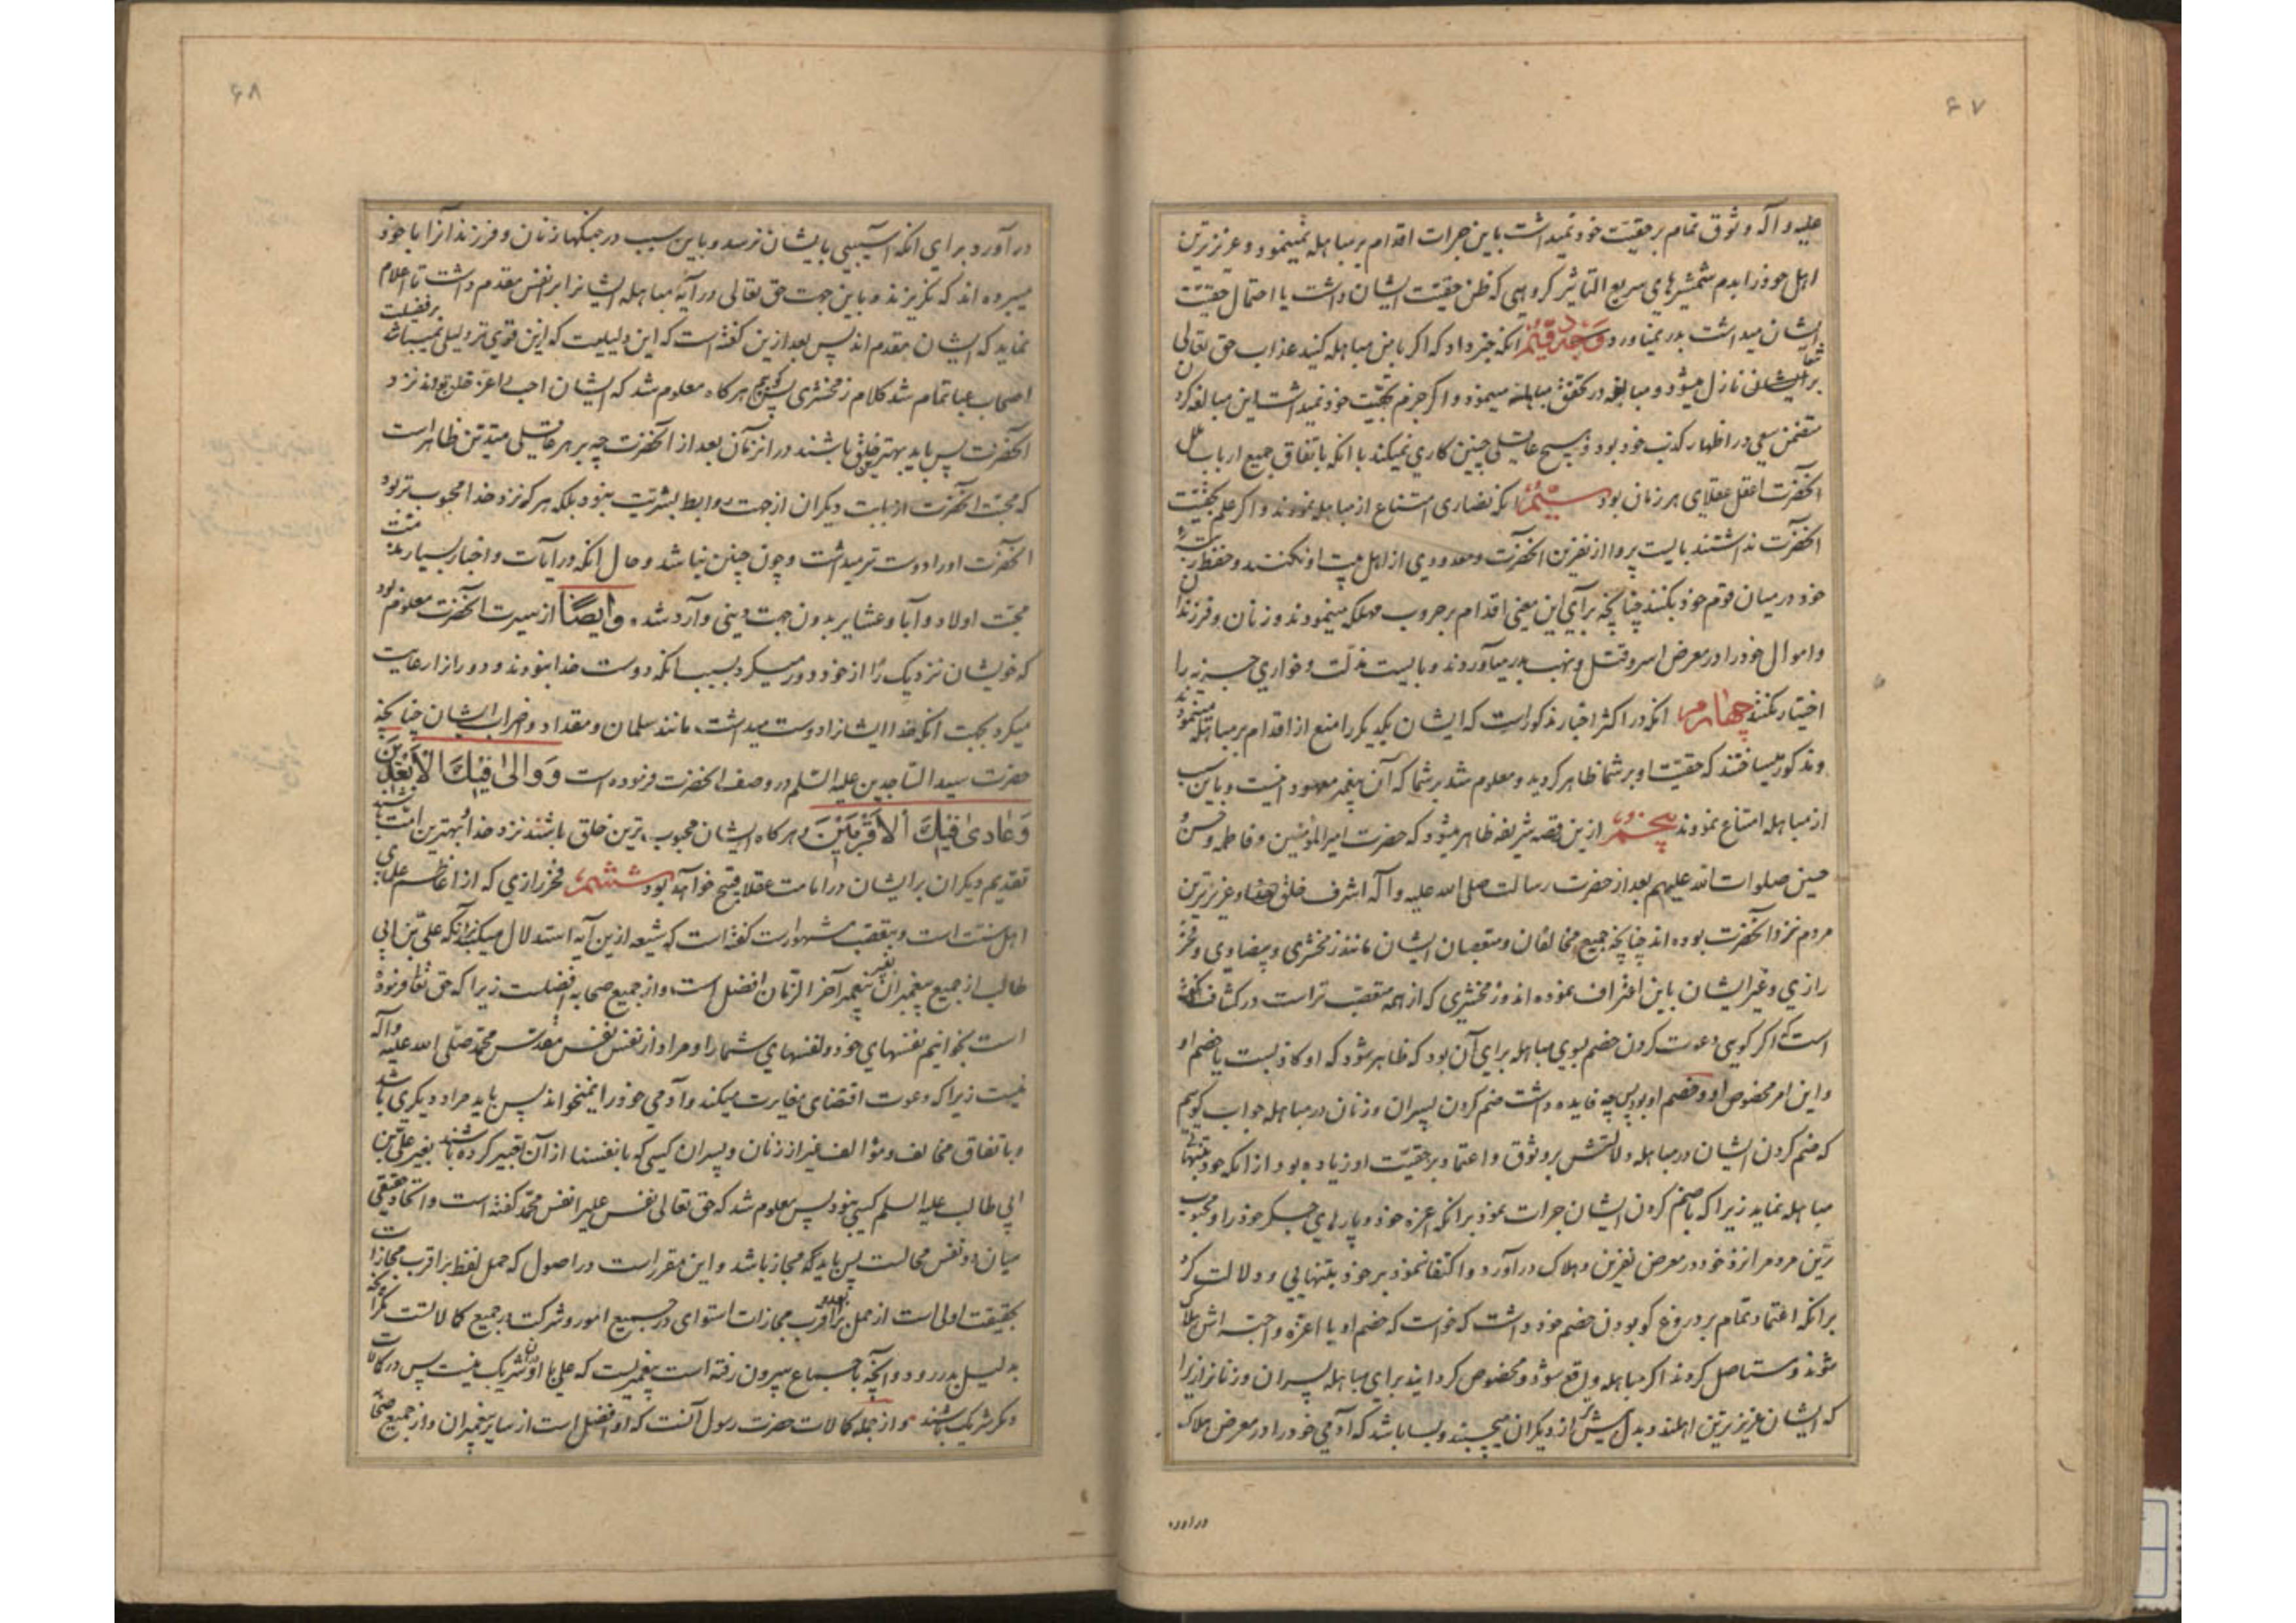 ۶۷
علیه و آله وثوق تمام بر حقیت خود نمیداشت باین جرات اقدام بر مباهله نمینمود و عزیزترین
اهل خود را بدم شمشیرهای سریع التاثیر گروهی که ظن حقیت ایشان داشت یا احتمال حقیت
ایشان میداشت بدر نمیاورد وجه دویم انکه خبر داد که اکر با من مباهله کنید عذاب حق تعالی
بر ایشان نازل میشود و مبالغه در تحقق مباهله مینمود و اکر جزم بحقیت خود نمیداشت این مبالغه کردن
متضمن سعی در اظهار کذب خود بود و هیچ عاقلی چنین کاری نمیکند با انکه باتفاق جمیع ارباب ملل
انحضرت اعقل عقلای هر زمان بود سیم انکه نصاری امتناع از مباهله نمودند و اکر علم بحقیت
انحضرت نداشتند بایست پروا از نفرین انحضرت و معدودی از اهل بیت او نکنند و حفظ رتبه
خود در میان قوم خود بکنند چنانچه برای این معنی اقدام بر حروب مهلکه مینمودند و زنان و فرزندان
و اموال خود را در معرض اسر و قتل و نهب بدر میاوردند و بایست مذلت و خواری جزیه را
اختیار نکنند چهارم انکه در اکثر اخبار مذکور است که ایشان یکدیکر را منع از اقدام بر مباهله مینمودند
و مذکور میساختند که حقیت او بر شما ظاهر کردید و معلوم شد بر شما که آن پیغمبر معهود اینست و باین سبب
از مباهله امتناع نمودند پنجم ازین قصه شریفه ظاهر میشود که حضرت امیرالمؤمنین و فاطمه و حسن و
حسین صلوات الله علیهم بعد از حضرت رسالت صلی الله علیه و آله اشرف خلق خدا و عزیزترین
مردم نزد انحضرت بوده اند چنانچه جمیع مخالفان و متعصبان ایشان مانند زمخشری و بیضاوی و فخر
رازی و غیر ایشان باین اعتراف نموده اند و زمخشری که از همه متعصب تر است در کشاف کفته
است که اکر کویی دعوت کردن خصم بسوی مباهله برای آن بود که ظاهر شود که او کاذبست یا خصم او
و این امر مخصوص او و خصم او بود پس چه فایده داشت ضم کردن پسران و زنان در مباهله جواب کوییم
که ضم کردن ایشان در مباهله دلالتش بر وثوق و اعتماد بر حقیت او زیاده بود از انکه خود بتنهائی
مباهله نماید زیرا که با ضم کردن ایشان جرات نمود بر انکه اعزه خود و پارهای جکر خود را و محبوب
ترین مردم را نزد خود در معرض نفرین و هلاک درآورد و اکتفا ننمود بر خود بتنهایی و دلالت کرد
برانکه اعتماد تمام بر دروغ کو بودن خصم خود داشت که خواست که خصم او با اعزه و احبه اش هلاک
شوند و مستاصل کردند اکر مباهله واقع شود و مخصوص کردانید برای مباهله پسران و زنانرا زیرا
که ایشان عزیزترین اهلند و بدل بیش از دیکران میچسبند و بسا باشد که آدمی خود را در معرض هلاک
دراورد
۶۸
درآورد برای انکه آسیبی بایشان نرسد و باین سبب در جنکها زنان و فرزندانرا با خود
میبرده اند که نکریزند و باین جهت حق تعالی در آیه مباهله ایشانرا بر انفس مقدم داشت تا اعلام
نماید که ایشان مقدم اند پس بعد ازین کفته است که این دلیلیست که ازین قوی تر دلیلی نمیباشد بر فضیلت
اصحاب عبا تمام شد کلام زمخشری پس کوییم هرکاه معلوم شد که ایشان احب و اعز خلق بودند نزد
انحضرت پس باید بهترین خلق باشند در انزمان بعد از انحضرت چه بر هر عاقلی متدین ظاهر است
که محبت انحضرت از بابت دیکران از جهت روابط بشریت نبود بلکه هر که نزد خدا محبوب تر بود
انحضرت او را دوست تر میداشت و چون چنین نباشد و حال انکه در آیات و اخبار بسیار مذمت
محبت اولاد و آبا و عشایر بدون جهت دینی وارد شده و ایضا از سیرت انحضرت معلوم بود
که خویشان نزدیک را از خود دور میکرد بسبب انکه دوست خدا نبودند و دورانرا رعایت
میکرد بجهت انکه خدا ایشانرا دوست میداشت مانند سلمان و مقداد و اضراب ایشان چنانچه
حضرت سید الساجدین علیه السلم در وصف انحضرت فرموده است و والی فیک الابعدین
و عادی فیک الاقربین و هرکاه ایشان محبوب ترین خلق باشند نزد خدا و بهترین امت باشند
تقدیم دیکران بر ایشان در امامت عقلا قبیح خواهد بود ششم فخر رازی که از اعاظم علمای
اهل سنت است و بتعصب مشهورست کفته است که شیعه ازین آیه استدلال میکنند بر آنکه علی بن ابی
طالب از جمیع پیغمبران بغیر پیغمبر آخر الزمان افضل است و از جمیع صحابه افضلست زیرا که حق تعا فرموده
است بخوانیم نفسهای خود و نفسهای شما را و مراد از نفس نفس مقدس محمد صلی الله علیه و آله
نیست زیرا که دعوت اقتضای مغایرت میکند و آدمی خود را نمیخواند پس باید مراد دیکری باشد
و باتفاق مخالف و مؤالف غیر از زنان و پسران کسی که بانفسنا از آن تعبیر کرده باشند بغیر علی بن
ابی طالب علیه السلم کسی نبود پس معلوم شد که حق تعالی نفس علیرا نفس محمد کفته است و اتحاد حقیقی
میان دو نفس محالست پس باید که مجاز باشد و این مقرر است در اصول که حمل لفظ بر اقرب مجازات
بحقیقت اولی است از حمل بر ابعد و اقرب مجازات استوای در جمیع امور و شرکت در جمیع کمالاتست مکر آنچه
بدلیل بدر رود و آنچه باجماع بیرون رفته است پیغمبریست که علی با او دران شریک نیست پس در کمالات
دیکر شریک باشند و از جمله کمالات حضرت رسول آنست که او افضل است از سایر پیغمبران و از جمیع صحابه